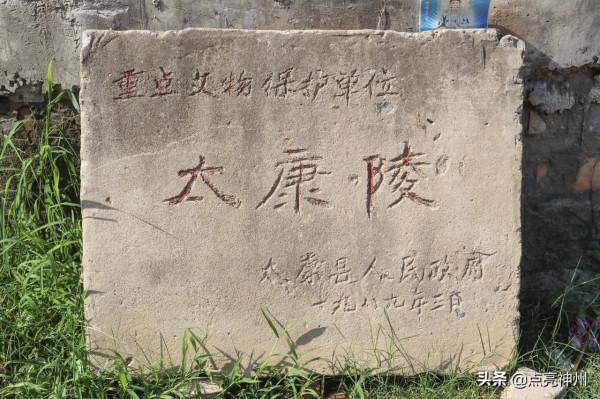 重点文物保护单位
太康陵
太康县人民政府
一九八九年三月
头条 @点亮神州